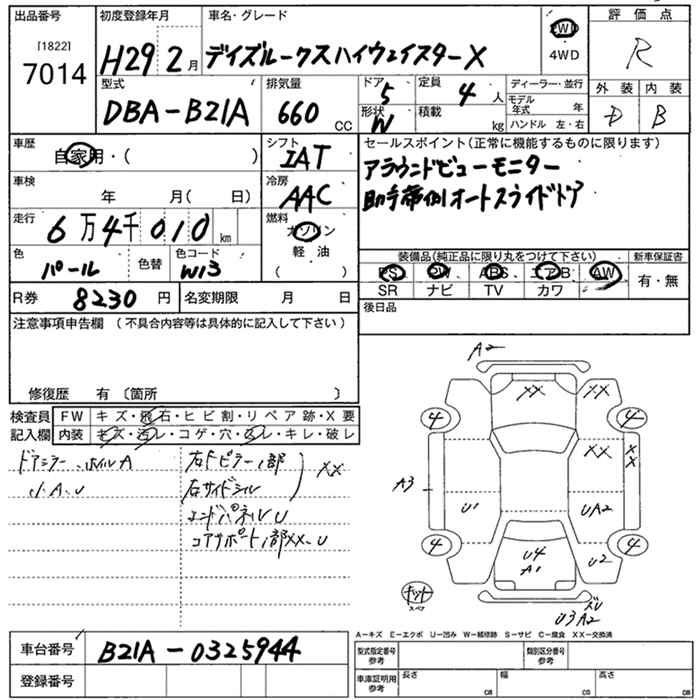 出品番号
[1822]
7014
初度登録年月
H29 2月
車名・グレード
デイズルークスハイウェイスターX
2WD
4WD
評価点
R
型式
DBA-B21A
排気量
660 CC
ドア
5
形状
W
定員
4人
積載
kg
ディーラー・並行
モデル年式 年
ハンドル 左・右
外装 内装
D B
車歴
自家用・( )
シフト
IAT
セールスポイント(正常に機能するものに限ります)
アラウンドビューモニター
助手席側オートスライドドア
車検
年 月( 日)
冷房
AAC
走行
6万4千010 km
燃料
ガソリン
軽油
( )
色
パール
色替
色コード
W13
装備品(純正品に限り丸をつけて下さい)
PS PW ABS エアB AW
SR ナビ TV カワ
新車保証書
有・無
R券
8230円
名変期限 月 日
後日品
注意事項申告欄 (不具合内容等は具体的に記入して下さい)
修復歴 有 〔箇所 〕
検査員記入欄
FW キズ・飛石・ヒビ割・リペア跡・X要
内装 キズ・汚レ・コゲ・穴・スレ・キレ・破レ
ドアミラー、ホイルA
小A、U
右Fピラー1部
右サイドシル
XX
エンドパネルU
コアサポート1部XX、U
A2
XX XX
4 4
XX XX
A3
U1 UA2
4 4
U4
A1
U2
キット
スペア
U3 A2
A-キズ E-エクボ U-凹み W-補修跡 S-サビ C-腐食 XX-交換済
車台番号
B21A-0325944
登録番号
型式指定番号
参考
類別区分番号
参考
車庫証明用
参考
長さ cm
幅 cm
高さ cm